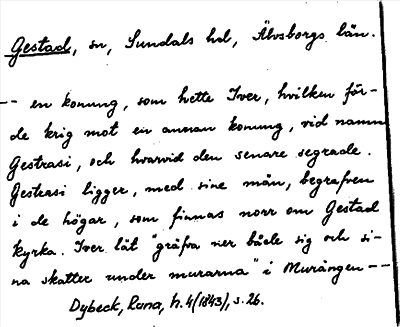 Gestad, sn, Sundals hd, Älvsborgs län.
-- en konung, som hette Iver, hvilken för-
de krig mot en annan konung, vid namn
Gestrasi, och hvarvid den senare segrade.
Gestrasi ligger, med sine män, begrafven
i de högar, som finnas norr om Gestad
kyrka. Iver lät "gräfva ner både sig och si-
na skatter under murarna" i Murängen --
Dybeck, Runa, h. 4 (1843), s. 26.